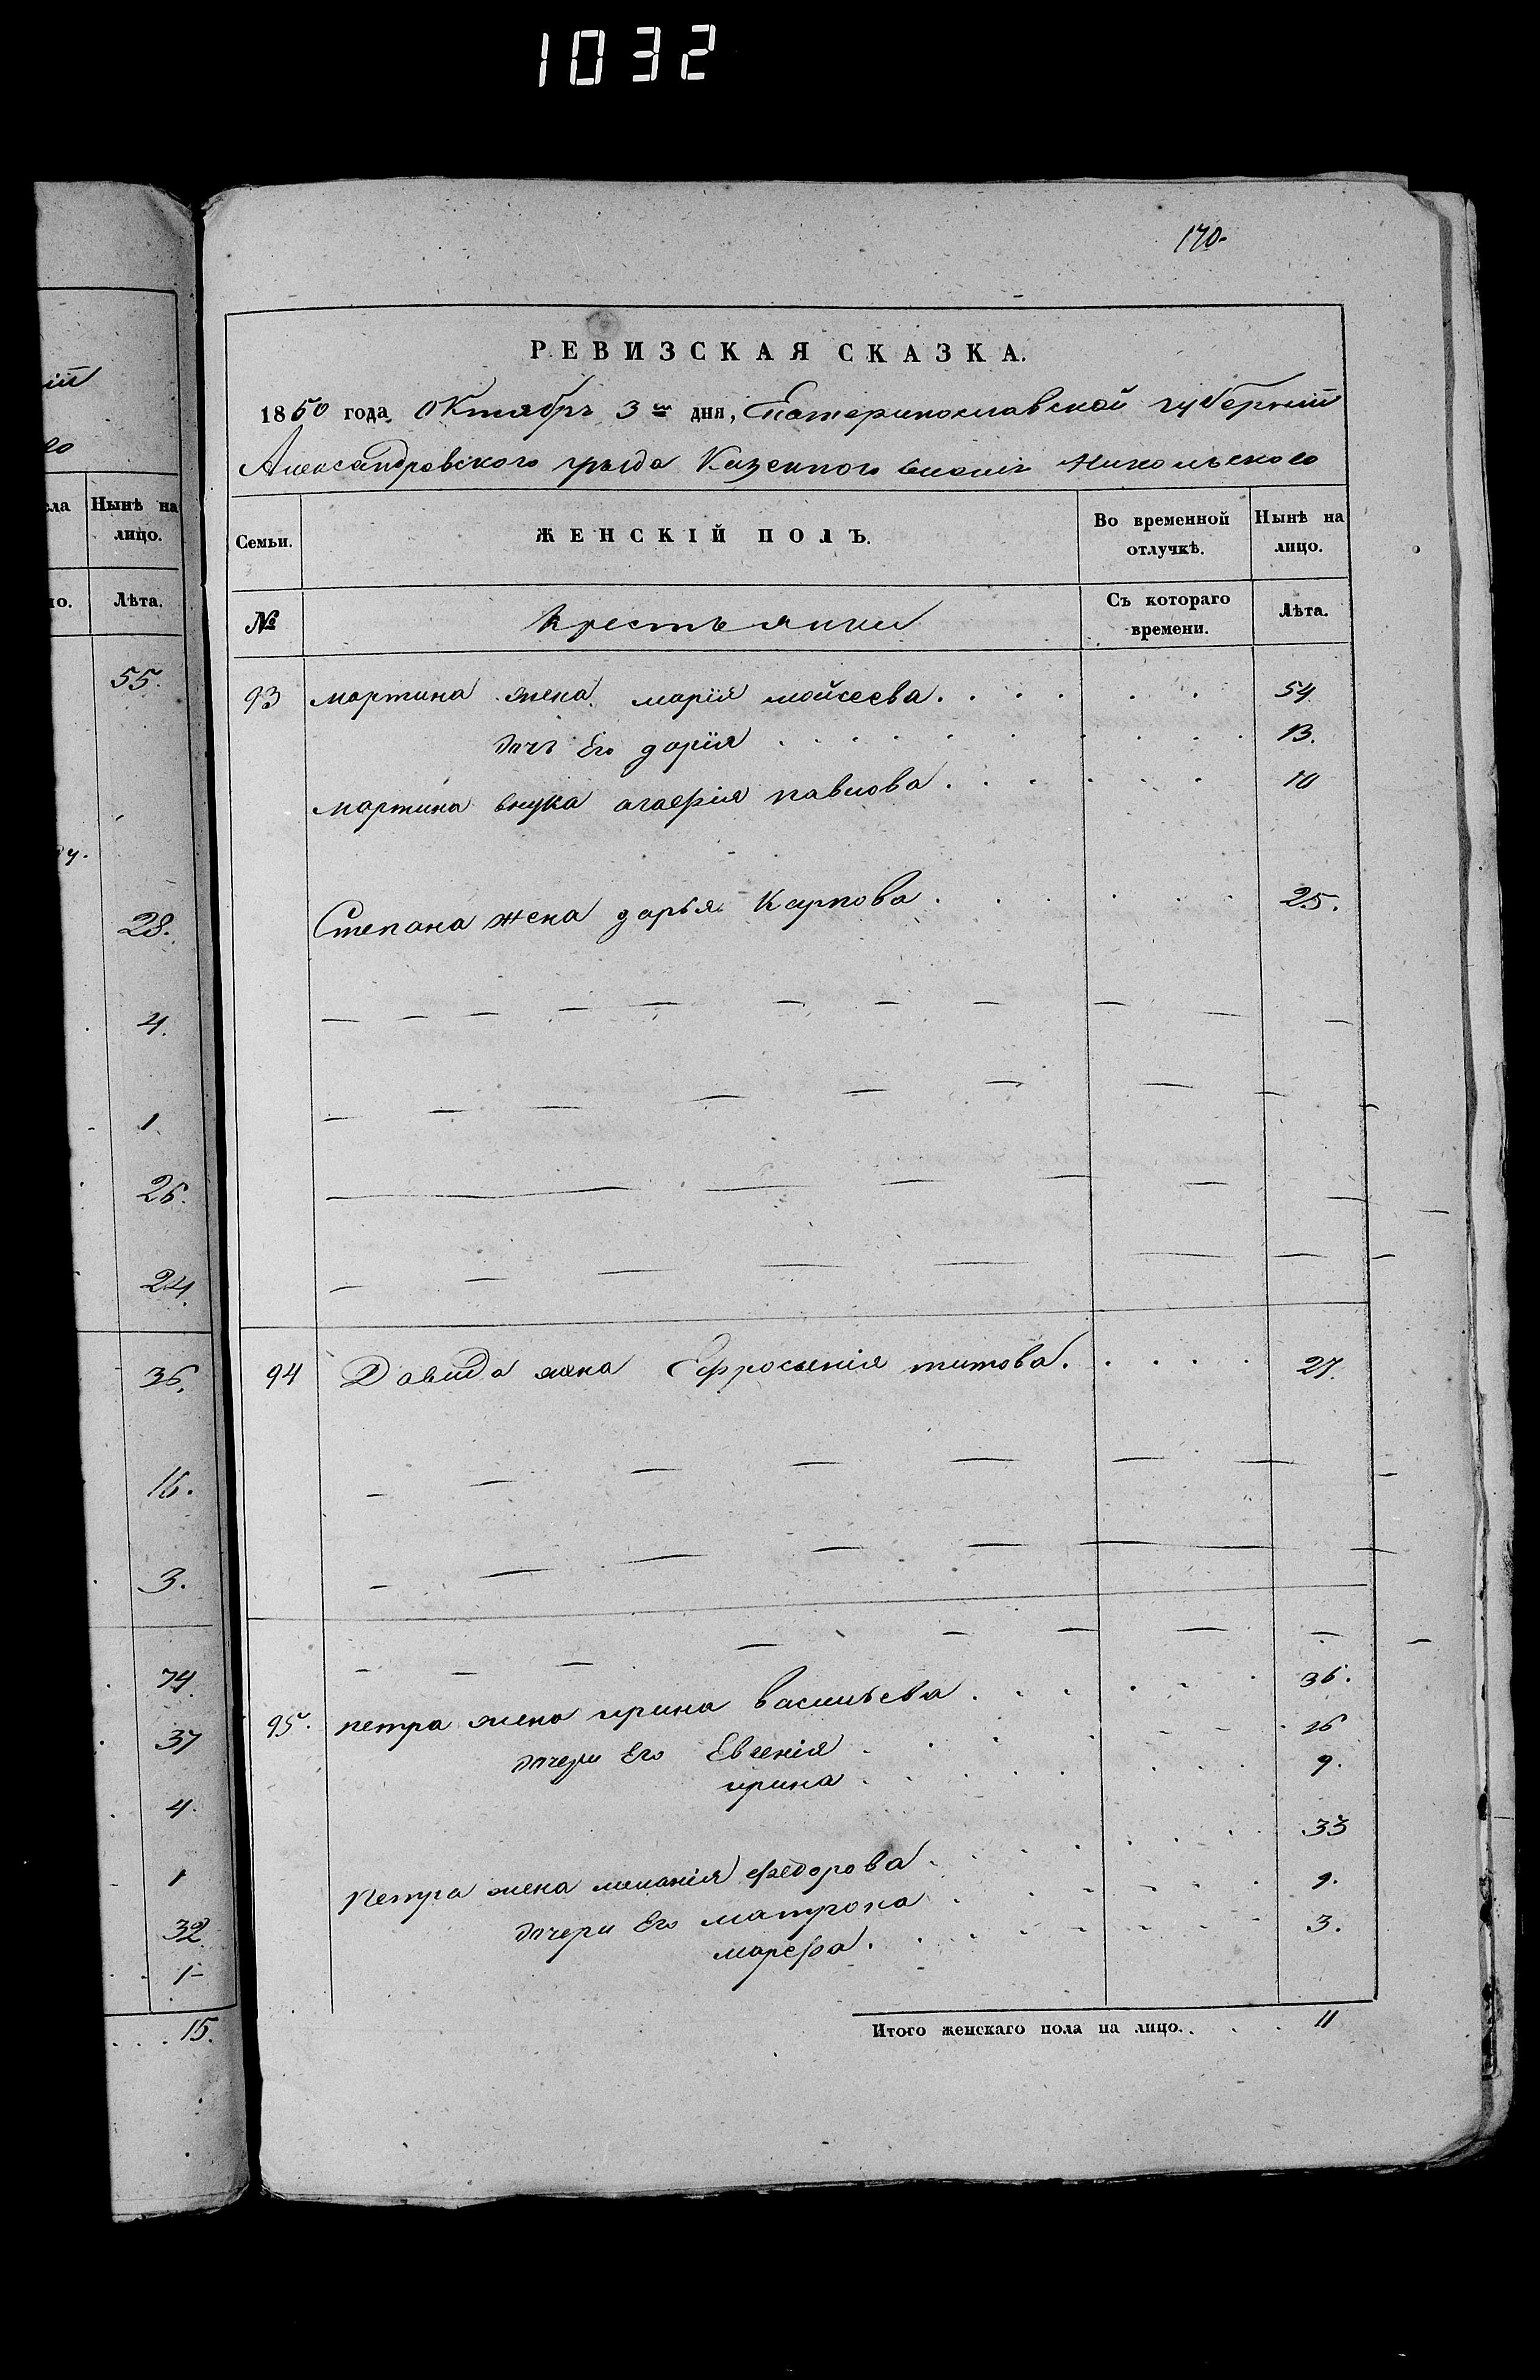 1032
170.
РЕВИЗСКАЯ СКАЗКА.
1850 года Октября 3го дня, Екатеринославской губерніи
Александровского уезда Казенного Никольского
Семьи.
ЖЕНСКІЙ ПОЛЪ.
Во временной отлучкѣ.
Нынѣ на лицо.
№
Крестьянки
Съ котораго времени.
Лѣта.
93 мартина жена марія мойсеева. 54
дочь Его дарія 13.
мартина внука агафія павлова. 10
Степана жена дарья Карпова. 25.
94 Давида жена Ефросенія титова. 27.
95. петра жена ирина васильева. 36.
дочери Его Евгенія 16
ирина 9.
Петра жена меланія федорова. 33
дочери Его матрона 9.
марфа. 3.
Итого женскаго пола на лицо. 11
Нынѣ на
лицо.
Лѣта.
55.
28.
4.
1.
26.
24.
36.
16.
3.
74.
37
4.
1
32.
1
15.